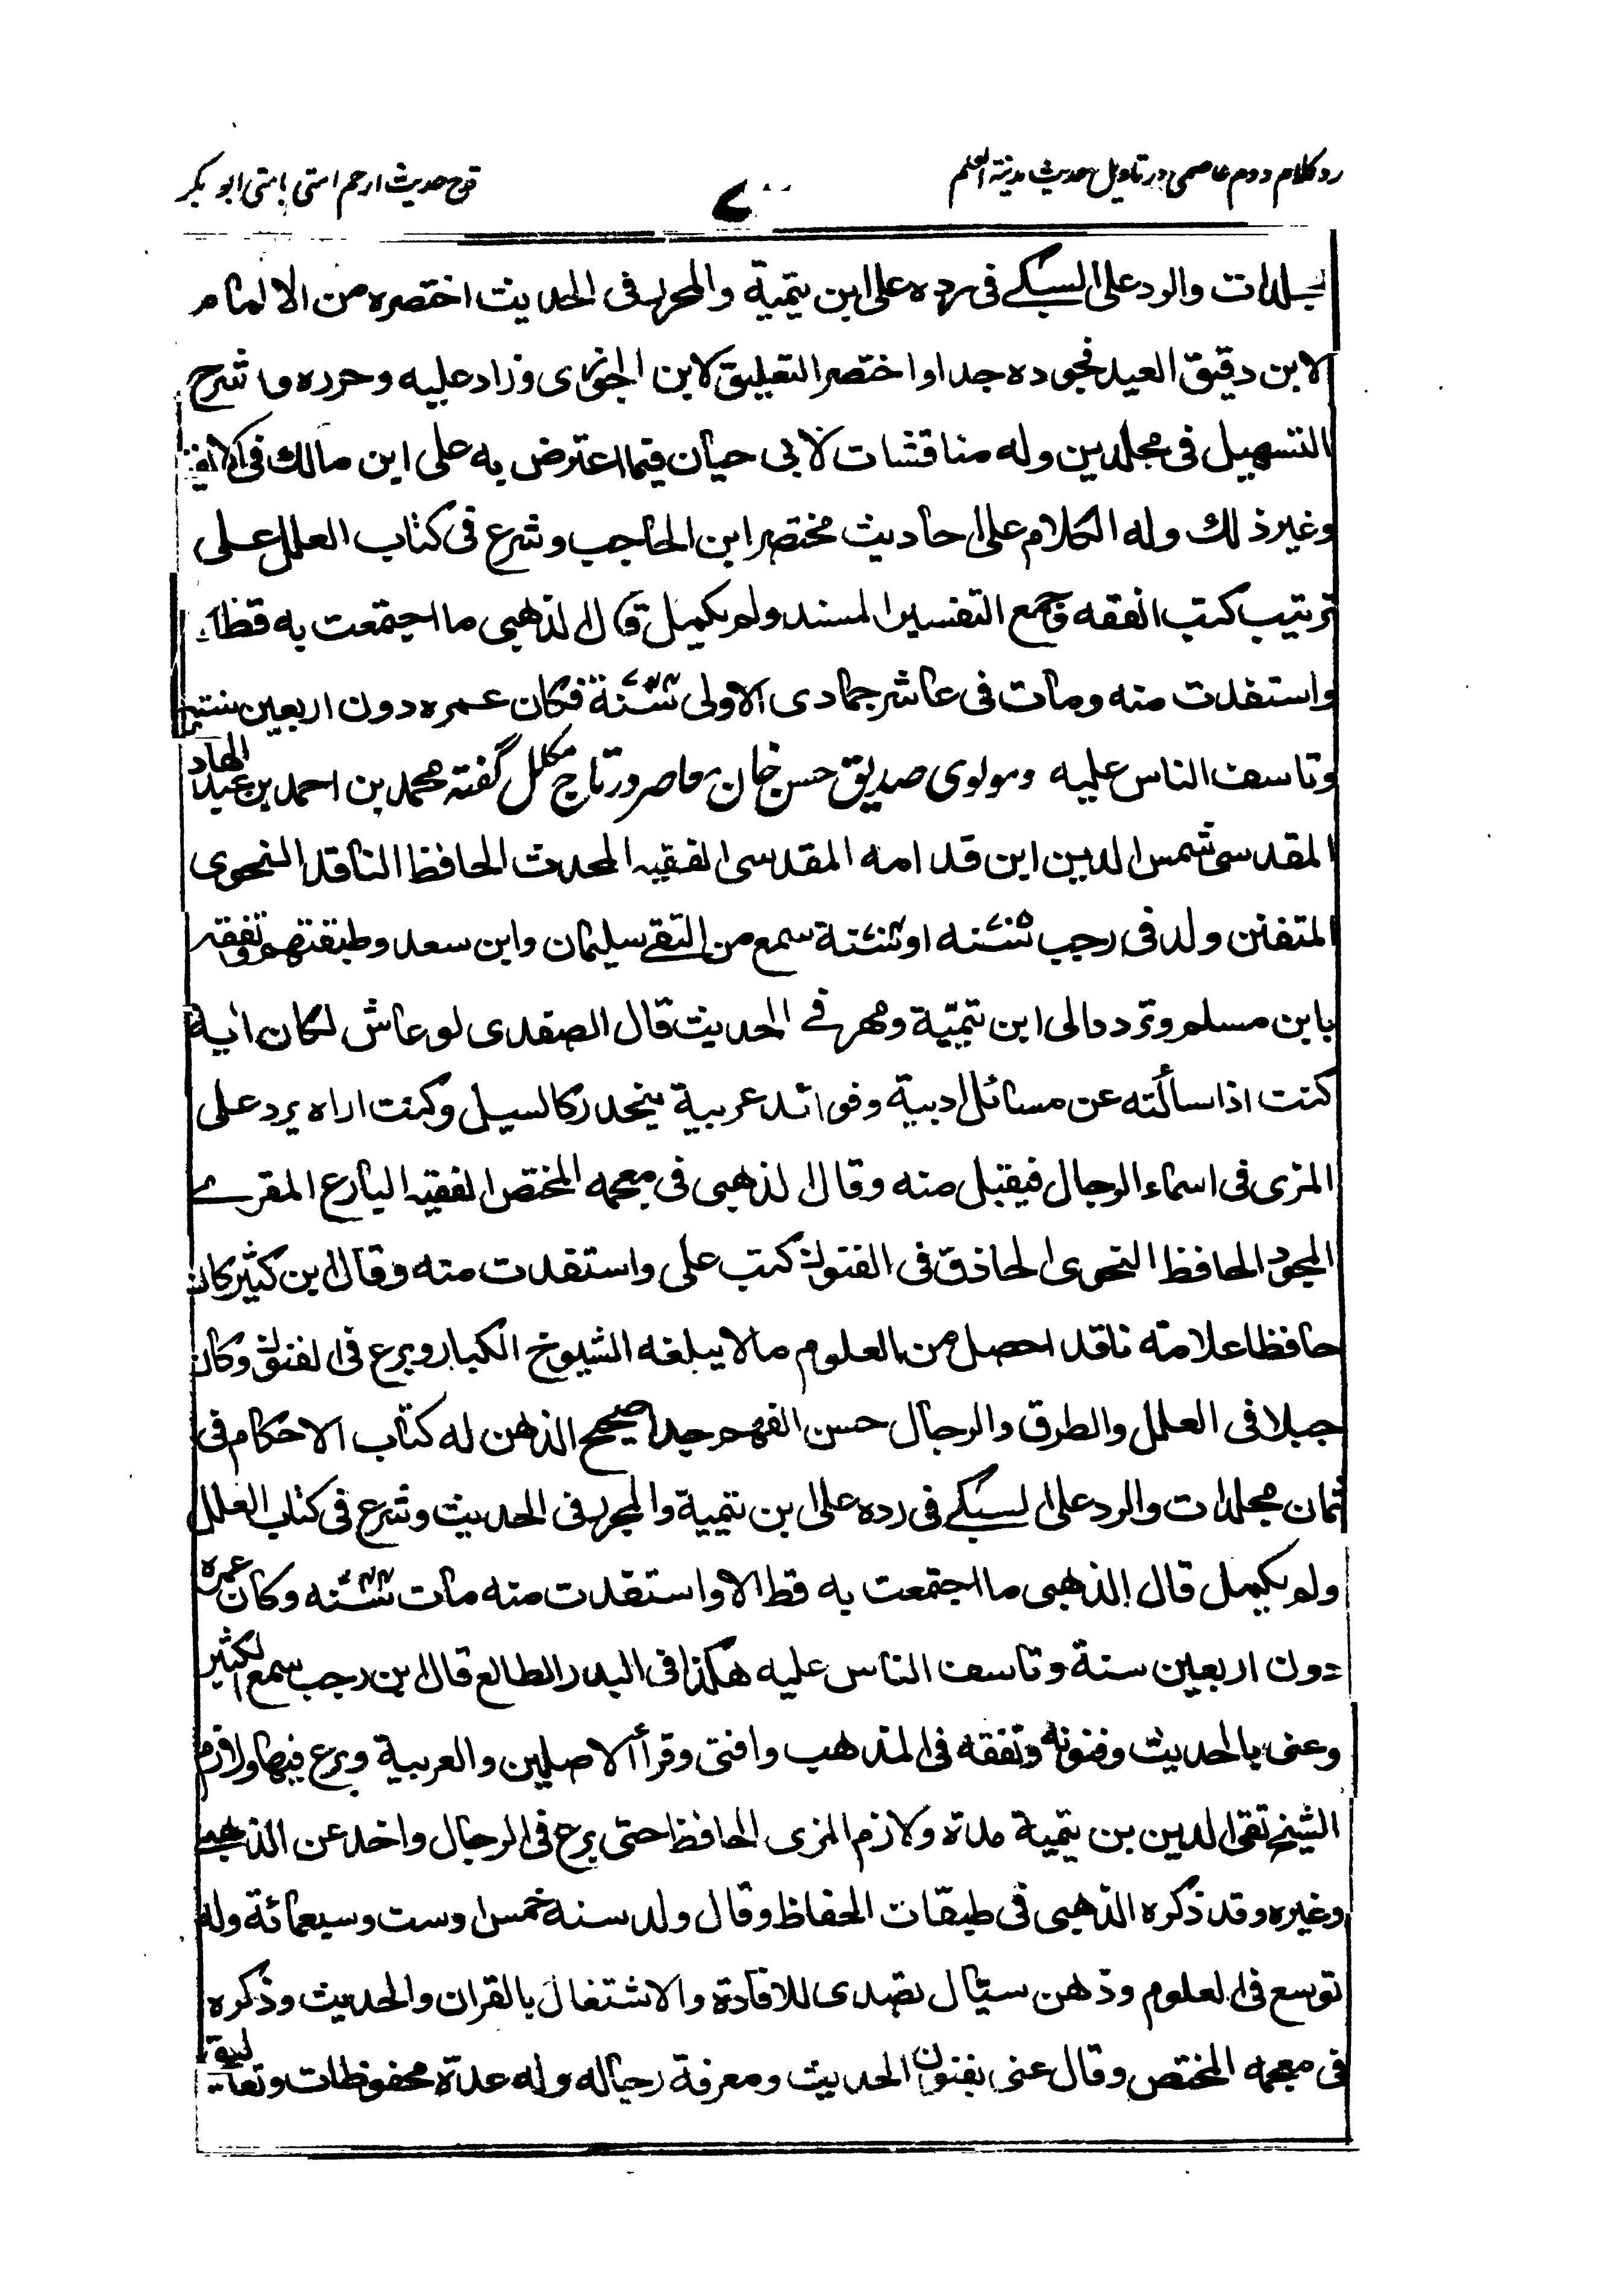 رد کلام دوم عاصمی در تاویل حدیث مدینة العلم
قدح حدیث ارحم امتی بامتی ابو بکر
مجلدات والرد على السبكے فى رده على ابن تيمية والمحرر فى الحديث اختصره من الالمام
لابن دقيق العيد فجوده جدا واختصر التعليق لابن الجوزى وزاد عليه وحرره وشرح
التسهيل فى مجلدين وله مناقشات لابى حيان فيما اعترض به على ابن مالك فى الالفية
وغير ذلك وله الكلام على احاديث مختصر ابن الحاجب وشرع فى كتاب العلل على
ترتيب كتب الفقه وجمع التفسير المسند ولم يكمل قال الذهبى ما اجتمعت به قط الا
واستفدت منه ومات فى عاشر جمادى الاولى فكان عمره دون اربعين سنة
وتاسف الناس عليه ومولوى صديق حسن خان معاصر در تاج مكلل گفته محمد بن احمد بن عبد الهادى
المقدسى شمس الدين ابن قدامه المقدسى الفقيه المحدث الحافظ الناقد النحوى
المتفنن ولد فى رجب او سمع من التقے سليمان وابن سعد وطبقتهم وتفقه
بابن مسلم وتردد الى ابن تيميّة ومهر فے الحديث قال الصفدى لو عاش لكان اية
كنت اذا سألته عن مسائل ادبية وفوائد عربية ينحدر كالسيل وكنت اراه يرد على
المزى فى اسماء الرجال فيقبل منه وقال الذهبى فى معجمه المختص الفقيه البارع المقرے
المجود الحافظ النحوى الحاذق فى الفنون كتب على واستفدت منه وقال ابن كثير كان
حافظا علامة ناقدا حصل من العلوم ما لا يبلغه الشيوخ الكبار وبرع فى الفنون وكان
جبلا فى العلل والطرق والرجال حسن الفهم جدا صحيح الذهن له كتاب الاحكام فى
ثمان مجلدات والرد على السبكے فى رده على ابن تيمية والمحرر فى الحديث وشرع فى كتاب العلل
ولم يكمل قال الذهبى ما اجتمعت به قط الا واستفدت منه مات وكان عمره
دون اربعين سنة وتاسف الناس عليه هكذا فى البدر الطالع قال ابن رجب سمع الكثير
وعنى بالحديث وفنونه وتفقه فى المذهب وافتى وقرأ الاصلين والعربية وبرع فيها ولازم
الشيخ تقى الدين بن تيمية مدة ولازم المزى الحافظ حتى برع فى الرجال واخذ عن الذهبے
وغيره وقد ذكره الذهبى فى طبقات الحفاظ وقال ولد سنه خمس او ست وسبعمائة وله
توسع فى العلوم وذهن سيّال تصدى للافادة والاشتغال بالقران والحديث وذكره
فى معجمه المختص وقال عنى بفنون الحديث ومعرفة رجاله وله عدة محفوظات وتعاليق